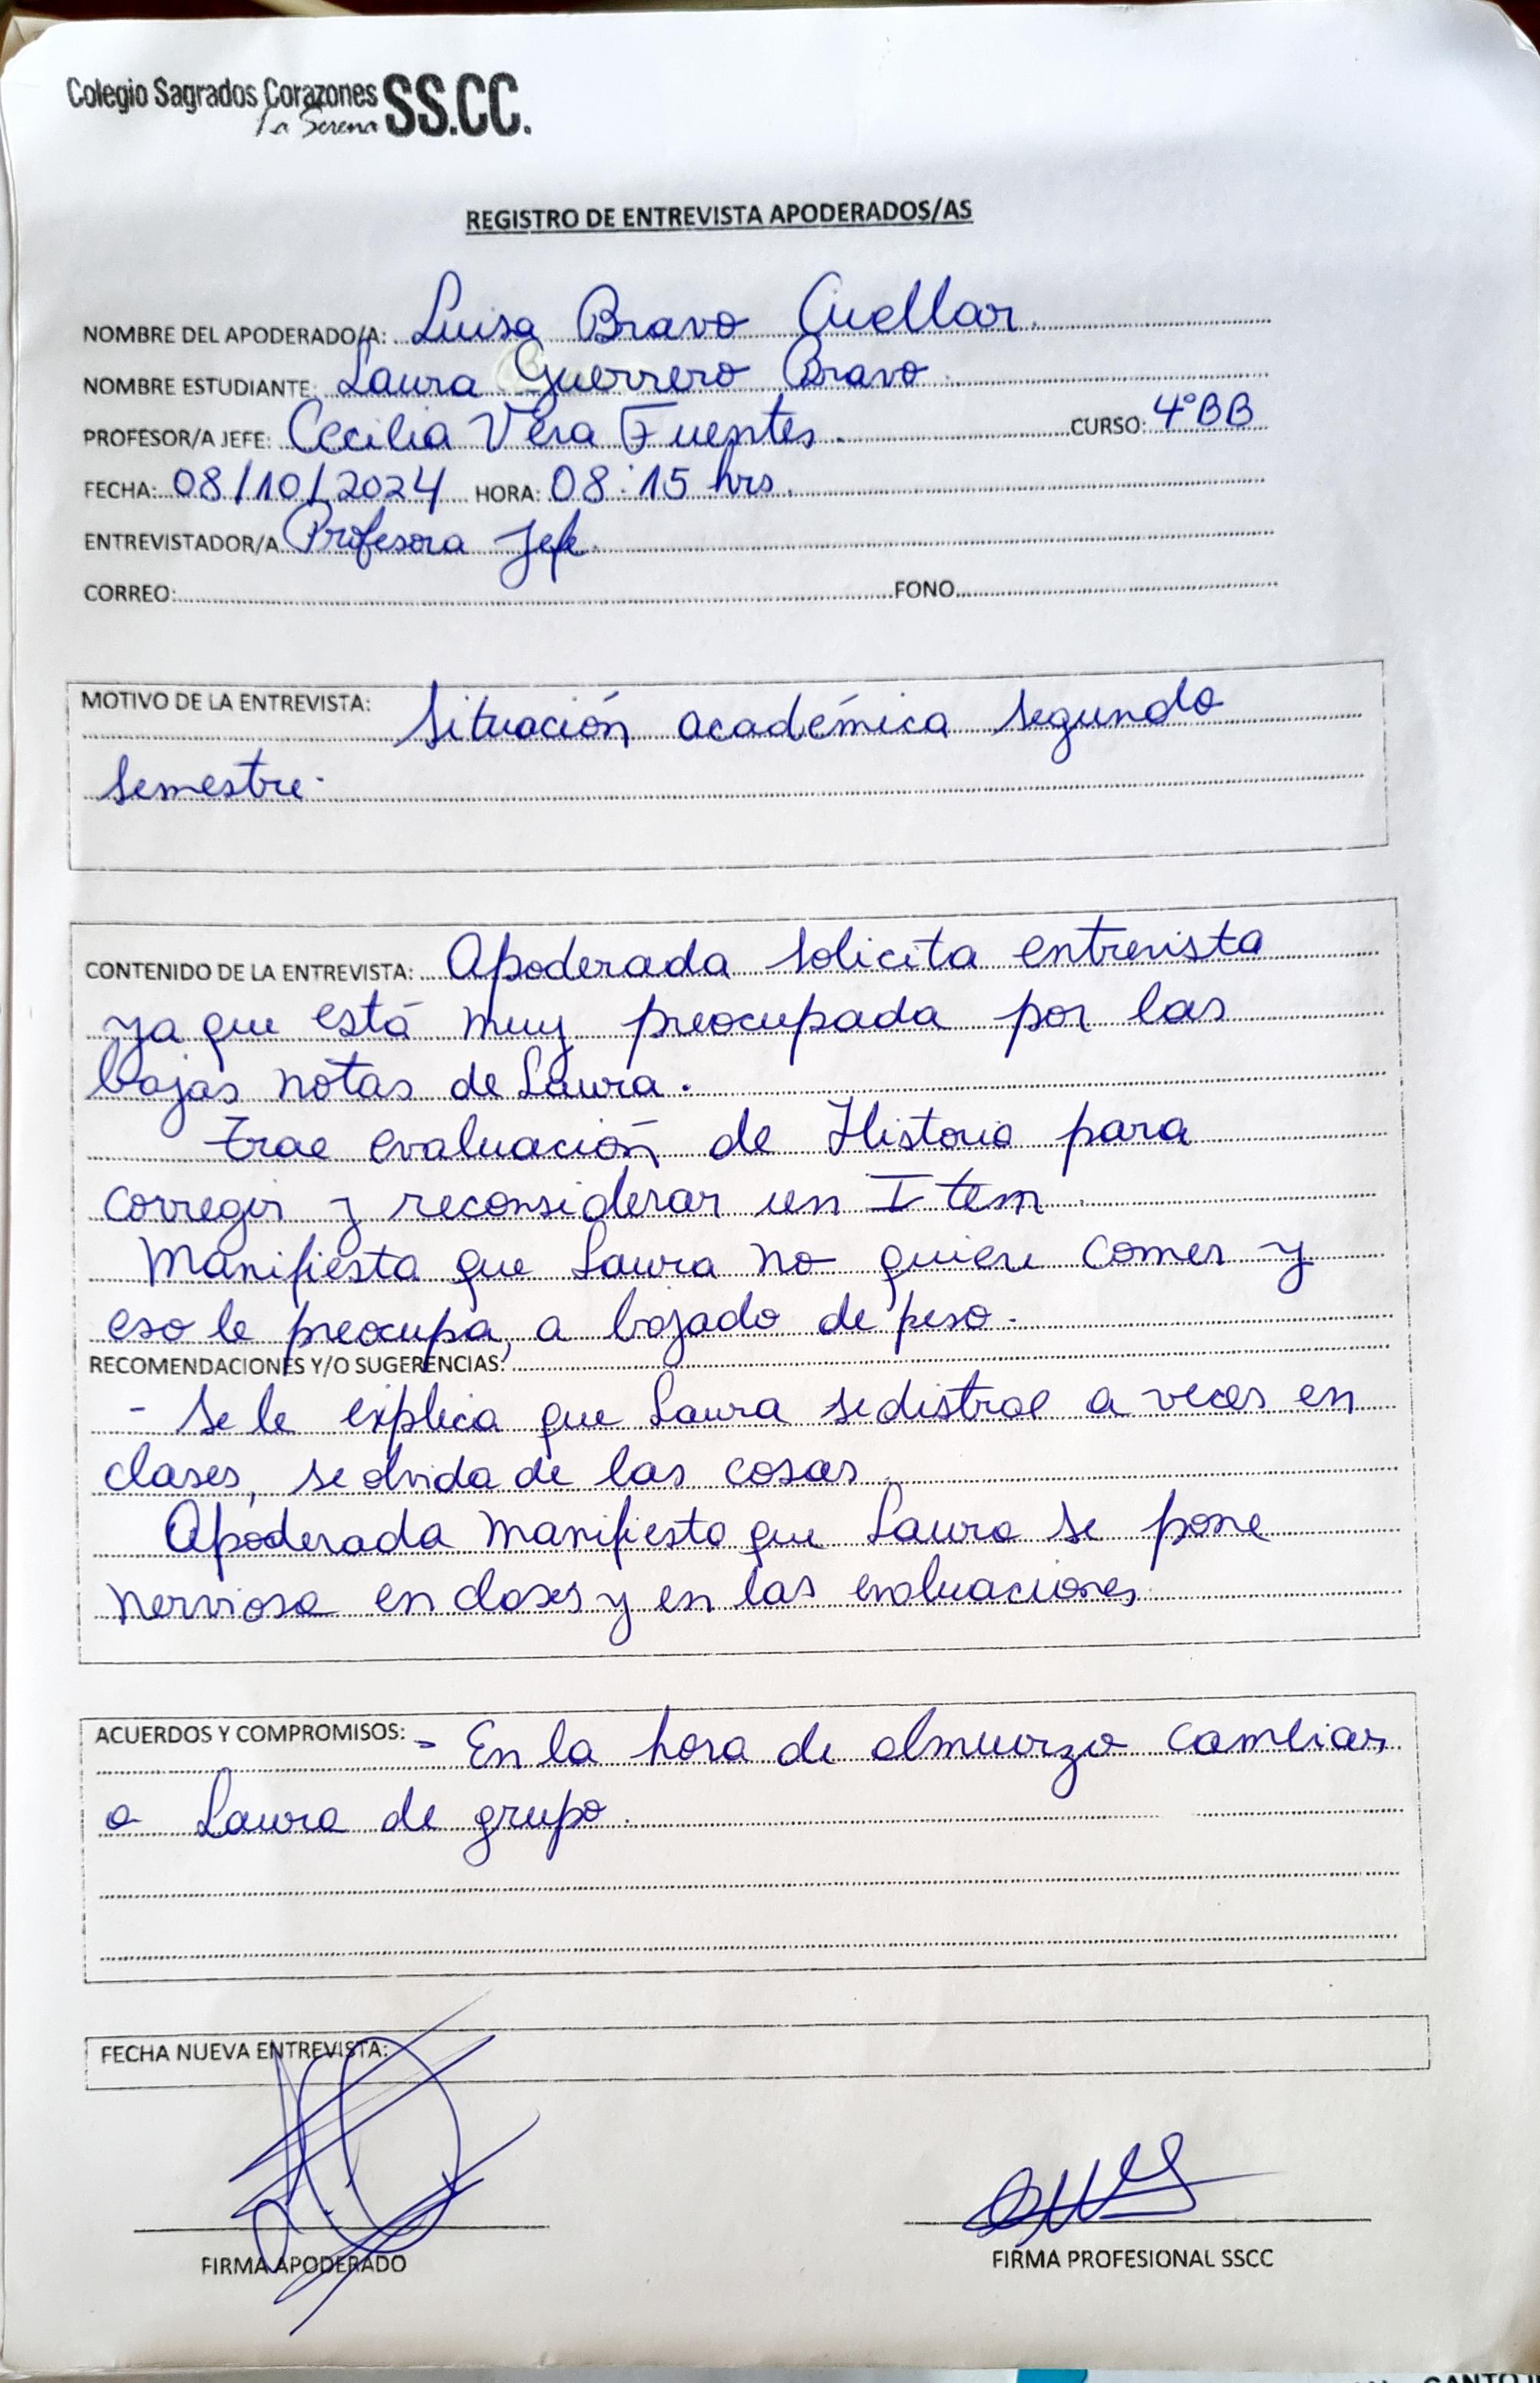 Colegio Sagrados Corazones SS.CC.
La Serena
REGISTRO DE ENTREVISTA APODERADOS/AS
NOMBRE DEL APODERADO/A: Luisa Bravo Cuellar.
NOMBRE ESTUDIANTE: Laura Guerrero Bravo
PROFESOR/A JEFE: Cecilia Vera Fuentes. CURSO: 4°BB
FECHA: 08/10/2024 HORA: 08:15 hrs.
ENTREVISTADOR/A Profesora Jefe.
CORREO: FONO
MOTIVO DE LA ENTREVISTA: Situación académica segundo
semestre.
CONTENIDO DE LA ENTREVISTA: Apoderada solicita entrevista
ya que está muy preocupada por las
bajas notas de Laura.
Trae evaluación de Historia para
corregir y reconsiderar un Item.
Manifiesta que Laura no quiere comer y
eso le preocupa, a bajado de peso.
RECOMENDACIONES Y/O SUGERENCIAS:
- Se le explica que Laura se distrae a veces en
clases, se olvida de las cosas.
Apoderada manifiesta que Laura se pone
nerviosa en clases y en las evaluaciones.
ACUERDOS Y COMPROMISOS: - En la hora de almuerzo cambiar
a Laura de grupo.
FECHA NUEVA ENTREVISTA:
FIRMA APODERADO FIRMA PROFESIONAL SSCC